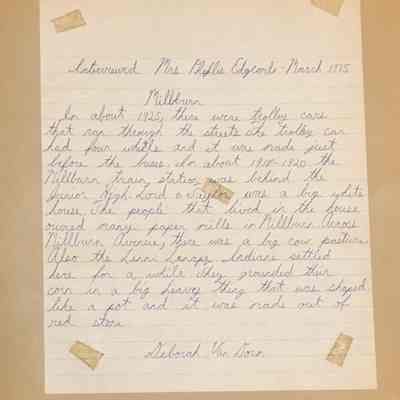 Interviewed Mrs. Phyllis Edgcomb - March 1975
Millburn
In about 1925, there were trolley cars
that ran through the streets. The trolley car
had four wheels and it was made just
before the buses. In about 1918-1920 the
Millburn train station was behind the
Junior High. Lord & Taylor was a big white
house. The people that lived in the house
owned many paper mills in Millburn. Across
Millburn Avenue, there was a big cow pasture.
Also the Lenni Lenape Indians settled
here for a while. They grounded their
corn in a big heavy thing that was shaped
like a pot and it was made out of
red stone
Deborah Van Dorn